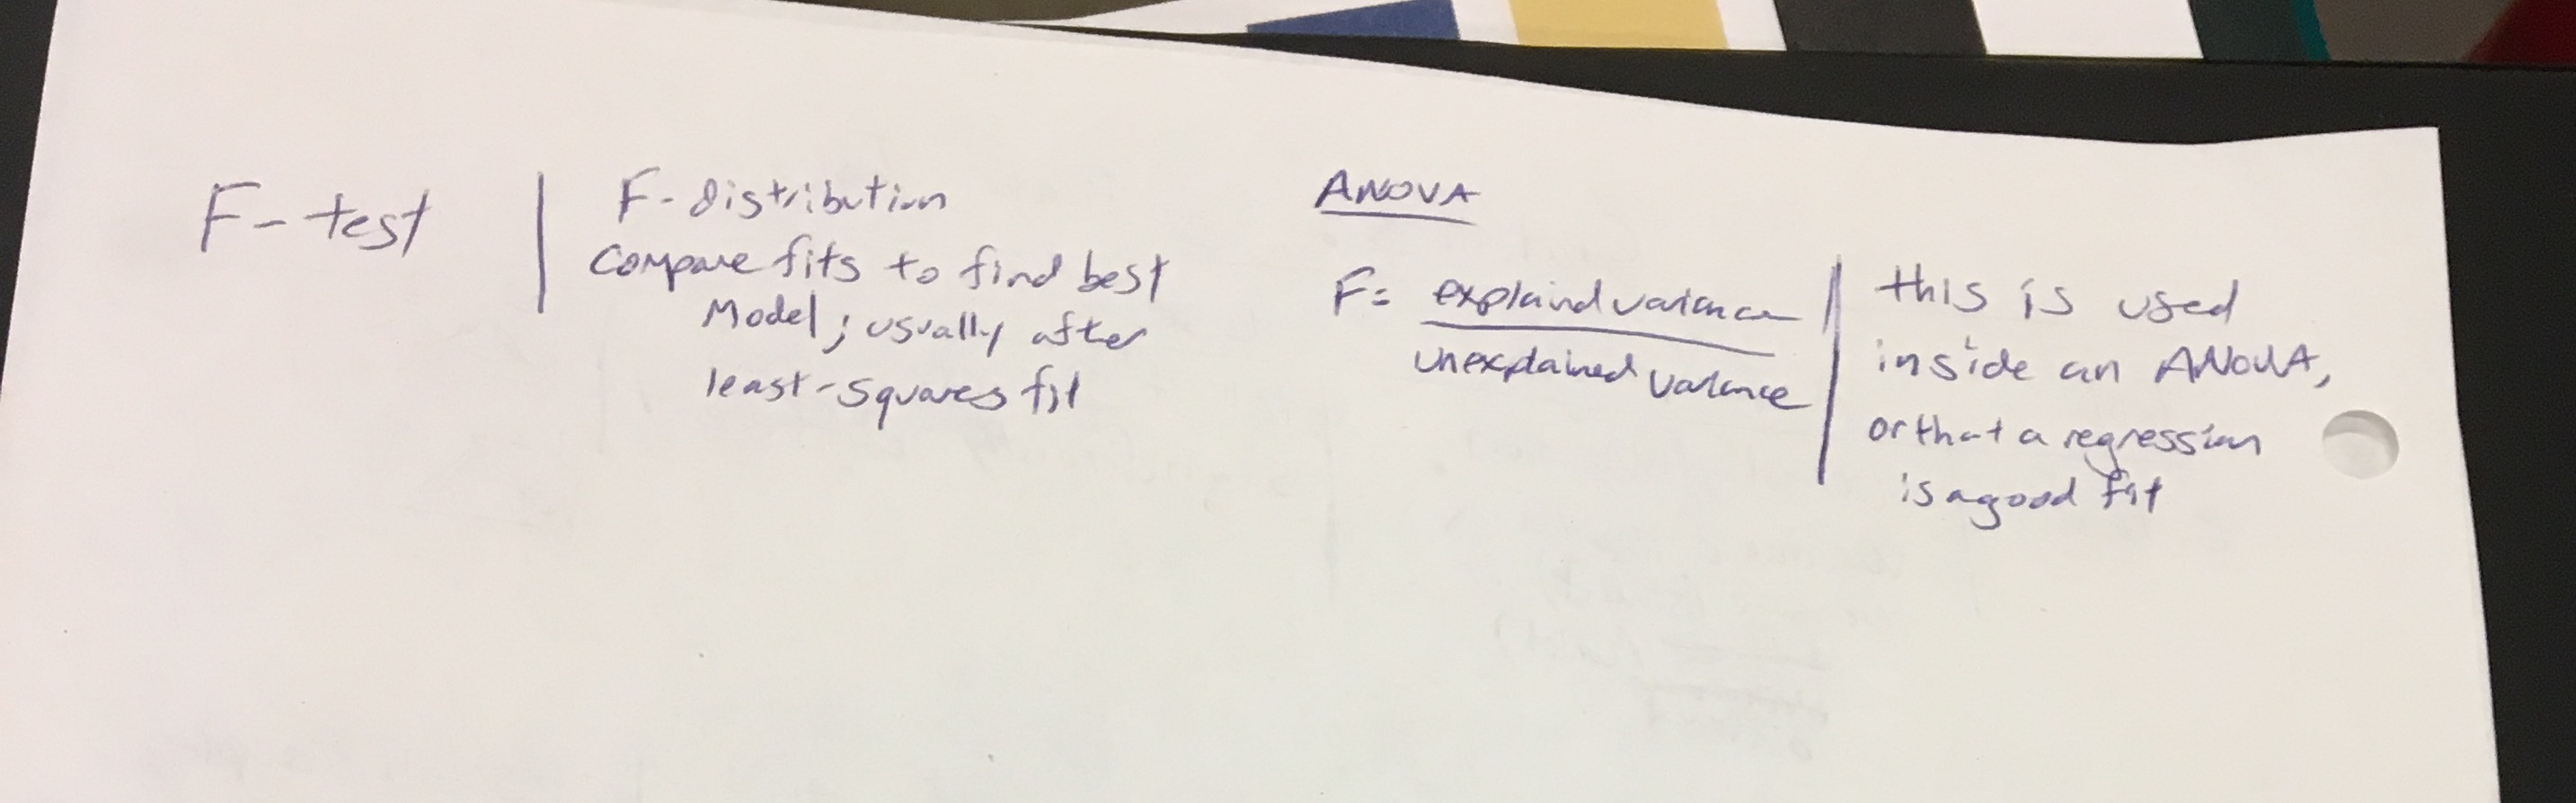 F-test
F-distribution
compare fits to find best
Model; usually after
least-squares fit
ANOVA
F= explaind variance
unexplained variance
this is used
inside an ANOVA,
or that a regression
is a good fit